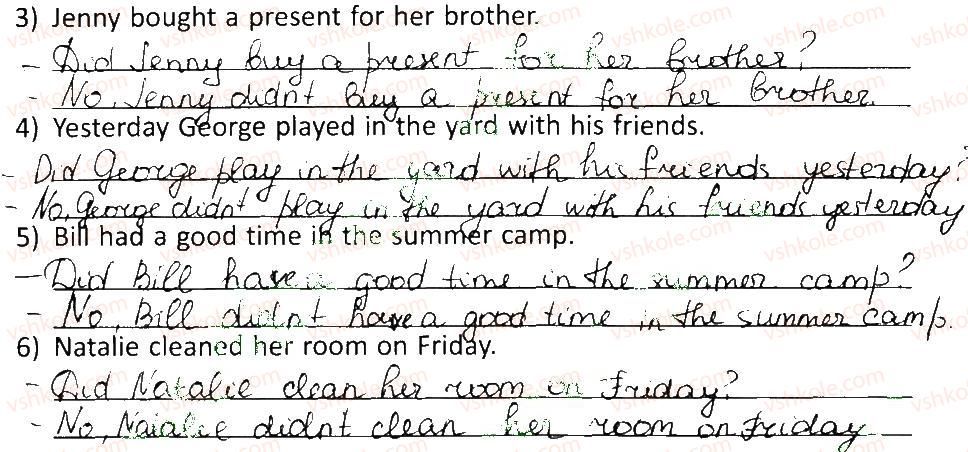 3) Jenny bought a present for her brother.
- Did Jenny buy a present for her brother?
- No, Jenny didn't buy a present for her brother.
4) Yesterday George played in the yard with his friends.
- Did George play in the yard with his friends yesterday?
- No, George didn't play in the yard with his friends yesterday
5) Bill had a good time in the summer camp.
- Did Bill have a good time in the summer camp?
- No, Bill didn't have a good time in the summer camp.
6) Natalie cleaned her room on Friday.
- Did Natalie clean her room on Friday?
- No, Natalie didnt clean her room on Friday